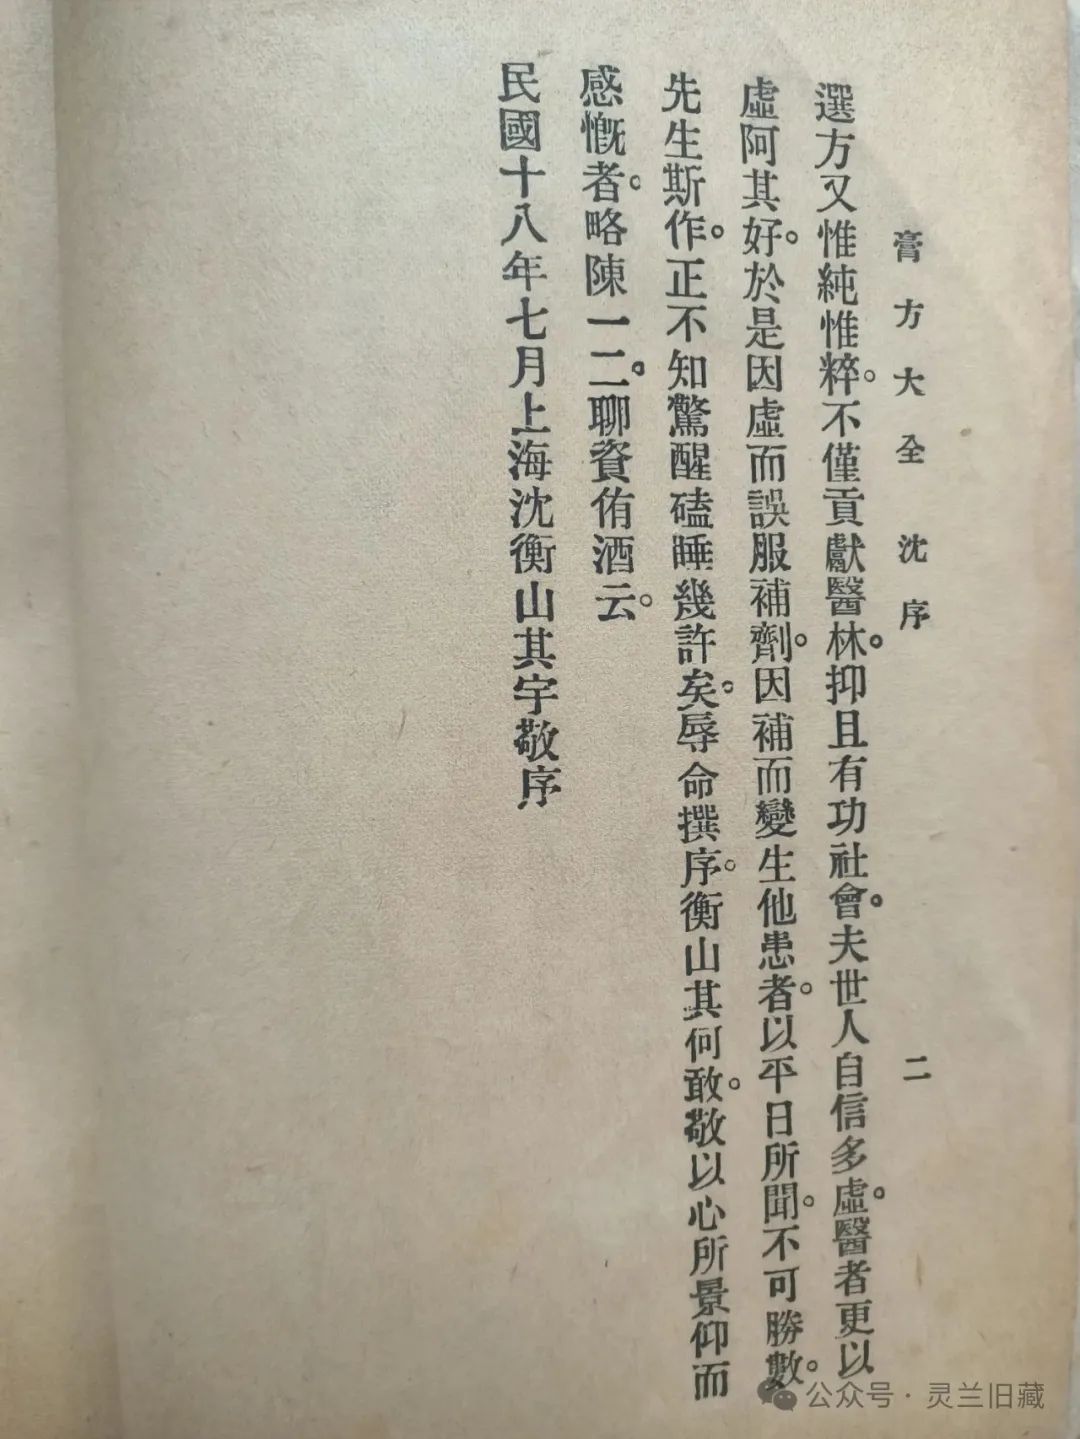 膏方大全 沈序 二
選方又惟純惟粹。不僅貢獻醫林。抑且有功社會。夫世人自信多虛。醫者更以
虛阿其好。於是因虛而誤服補劑。因補而變生他患者。以平日所聞。不可勝數。
先生斯作。正不知驚醒磕睡幾許矣。辱命撰序。衡山其何敢。敬以心所景仰而
感慨者。略陳一二。聊資侑酒云。
民國十八年七月上海沈衡山其宇敬序
公众号·灵兰旧藏